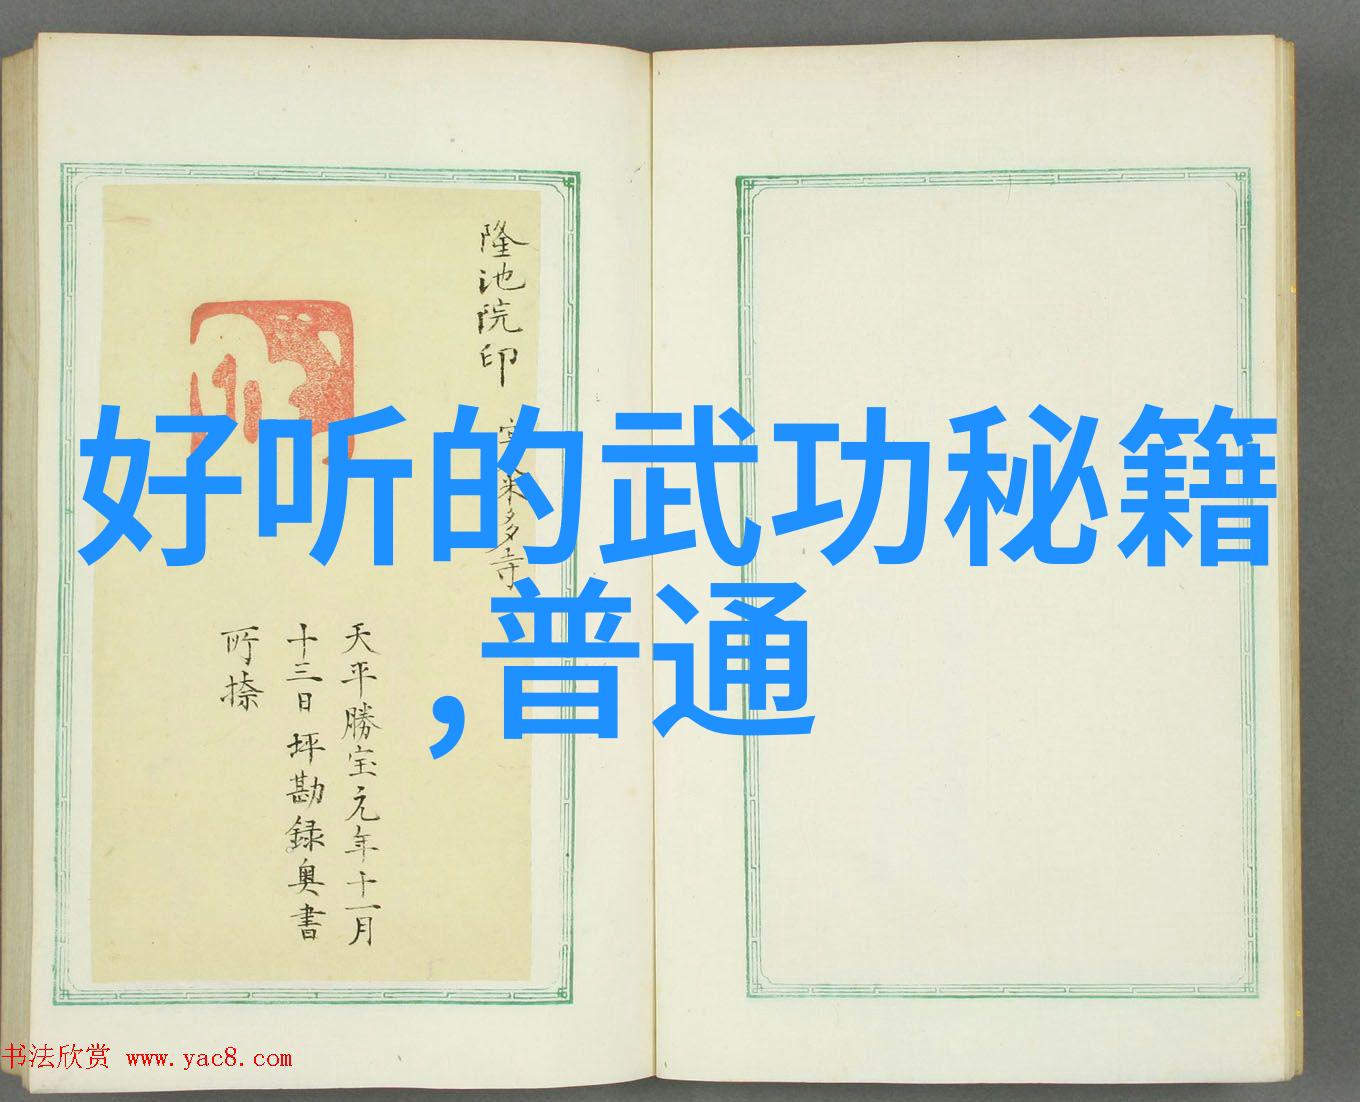 隆池院印
米多寺
天平勝宝元年十一月
十三日坪勘録奥書
所捺
好听的武功秘籍
,普通
书法欣赏 www.yac8.com